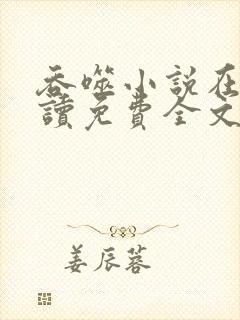 吞噬小说在
讀免費全文
姜辰蓉